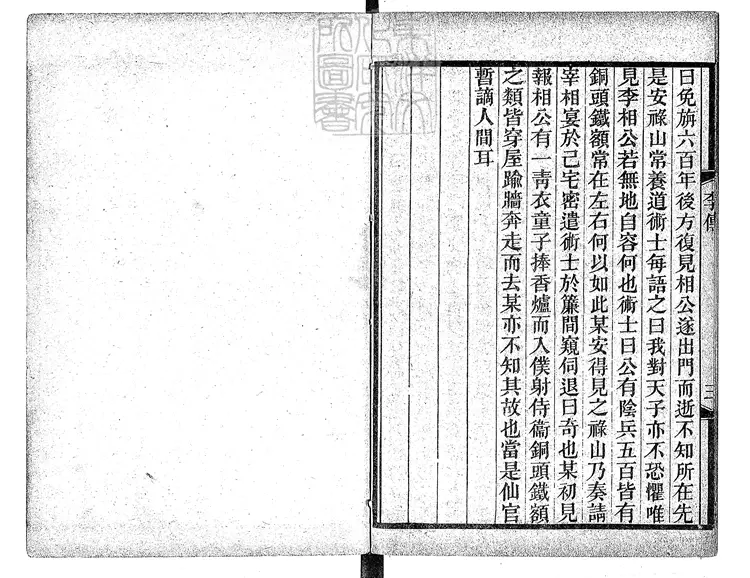 曰免旃六百年後方復見相公遂出門而逝不知所在先
是安祿山常養道術士每語之曰我對天子亦不恐懼唯
見李相公若無地自容何也術士曰公有陰兵五百皆有
銅頭鐵額常在左右何以如此某安得見之祿山乃奏請
宰相宴於己宅密遣術士於簾間窺伺退曰奇也某初見
報相公有一青衣童子捧香爐而入僕射侍衞銅頭鐵額
之類皆穿屋踰牆奔走而去某亦不知其故也當是仙官
暫謫人間耳
李傳
三